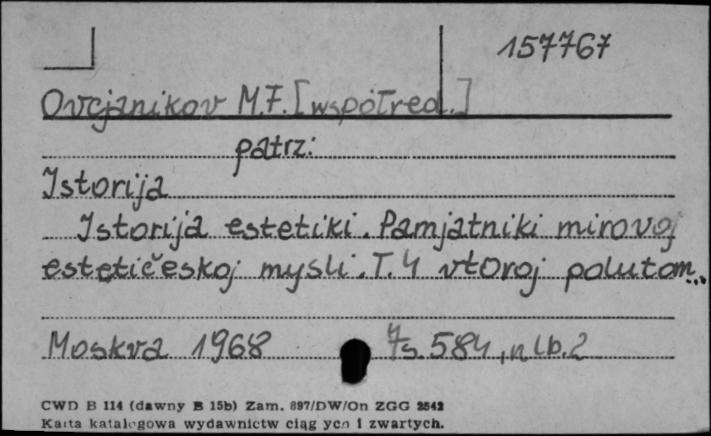 157767
Ovcjanikov M.F. [współred.]
patrz:
Istorija
Istorija estetiki. Pamjatniki mirovoj
estetičeskoj mysli. T. 4 vtoroj polutom...
Moskva 1968 s. 584, nlb. 2
CWD B 114 (dawny B 15b) Zam. 897/DW/On ZGG 2542
Karta katalogowa wydawnictw ciąg ych i zwartych.